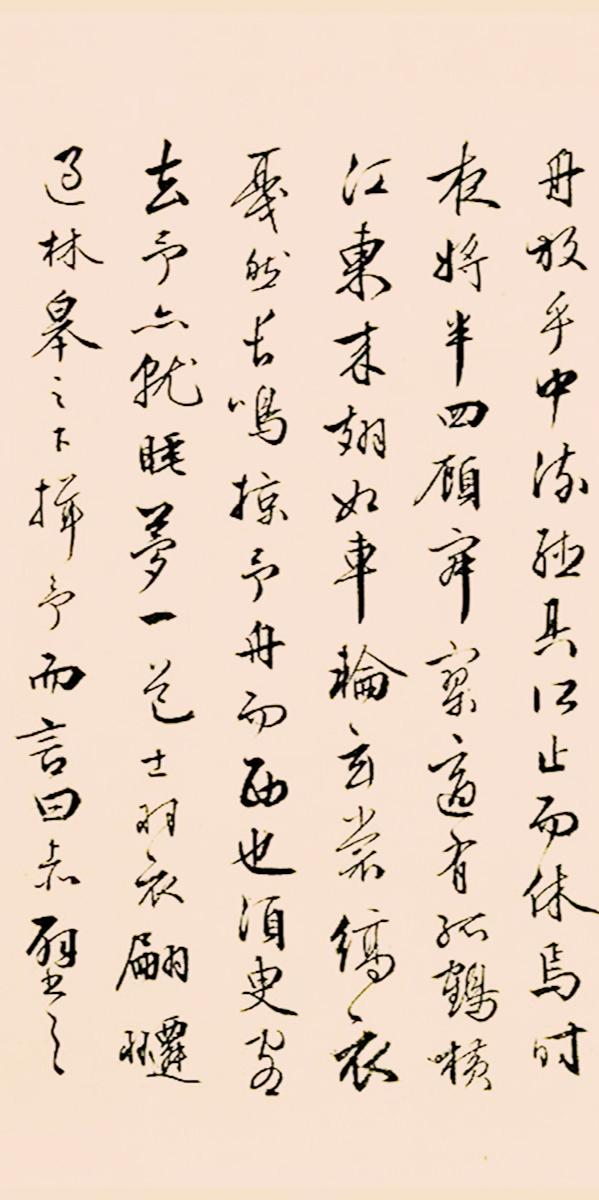 舟放乎中流聽其所止而休焉时
夜將半四顧寂寥適有孤鶴橫
江東来翅如車輪玄裳縞衣
戛然長鳴掠予舟而西也須臾客
去予亦就睡夢一道士羽衣翩躚
過林皋之下揖予而言曰赤壁之